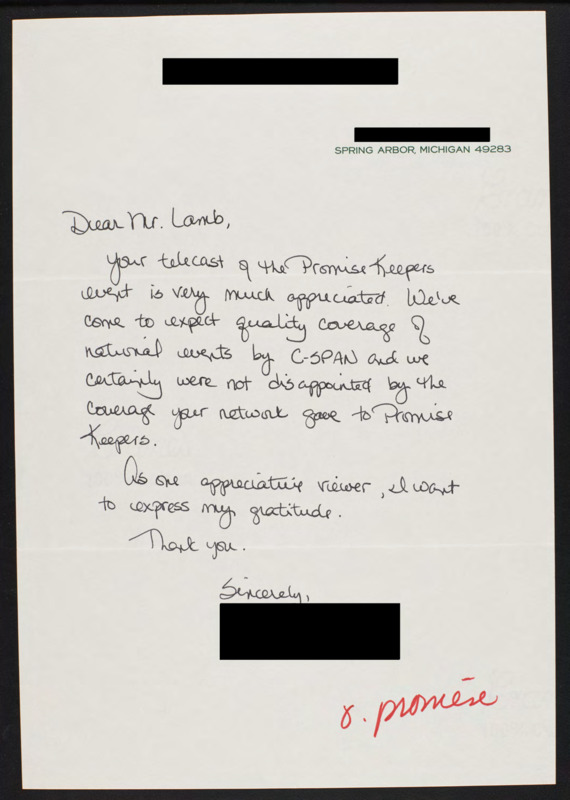 SPRING ARBOR, MICHIGAN 49283
Dear Mr. Lamb,
Your telecast of the Promise Keepers
event is very much appreciated. We've
come to expect quality coverage of
national events by C-SPAN and we
certainly were not disappointed by the
coverage your network gave to Promise
Keepers.
As one appreciative viewer, I want
to express my gratitude.
Thank you.
Sincerely,
promise